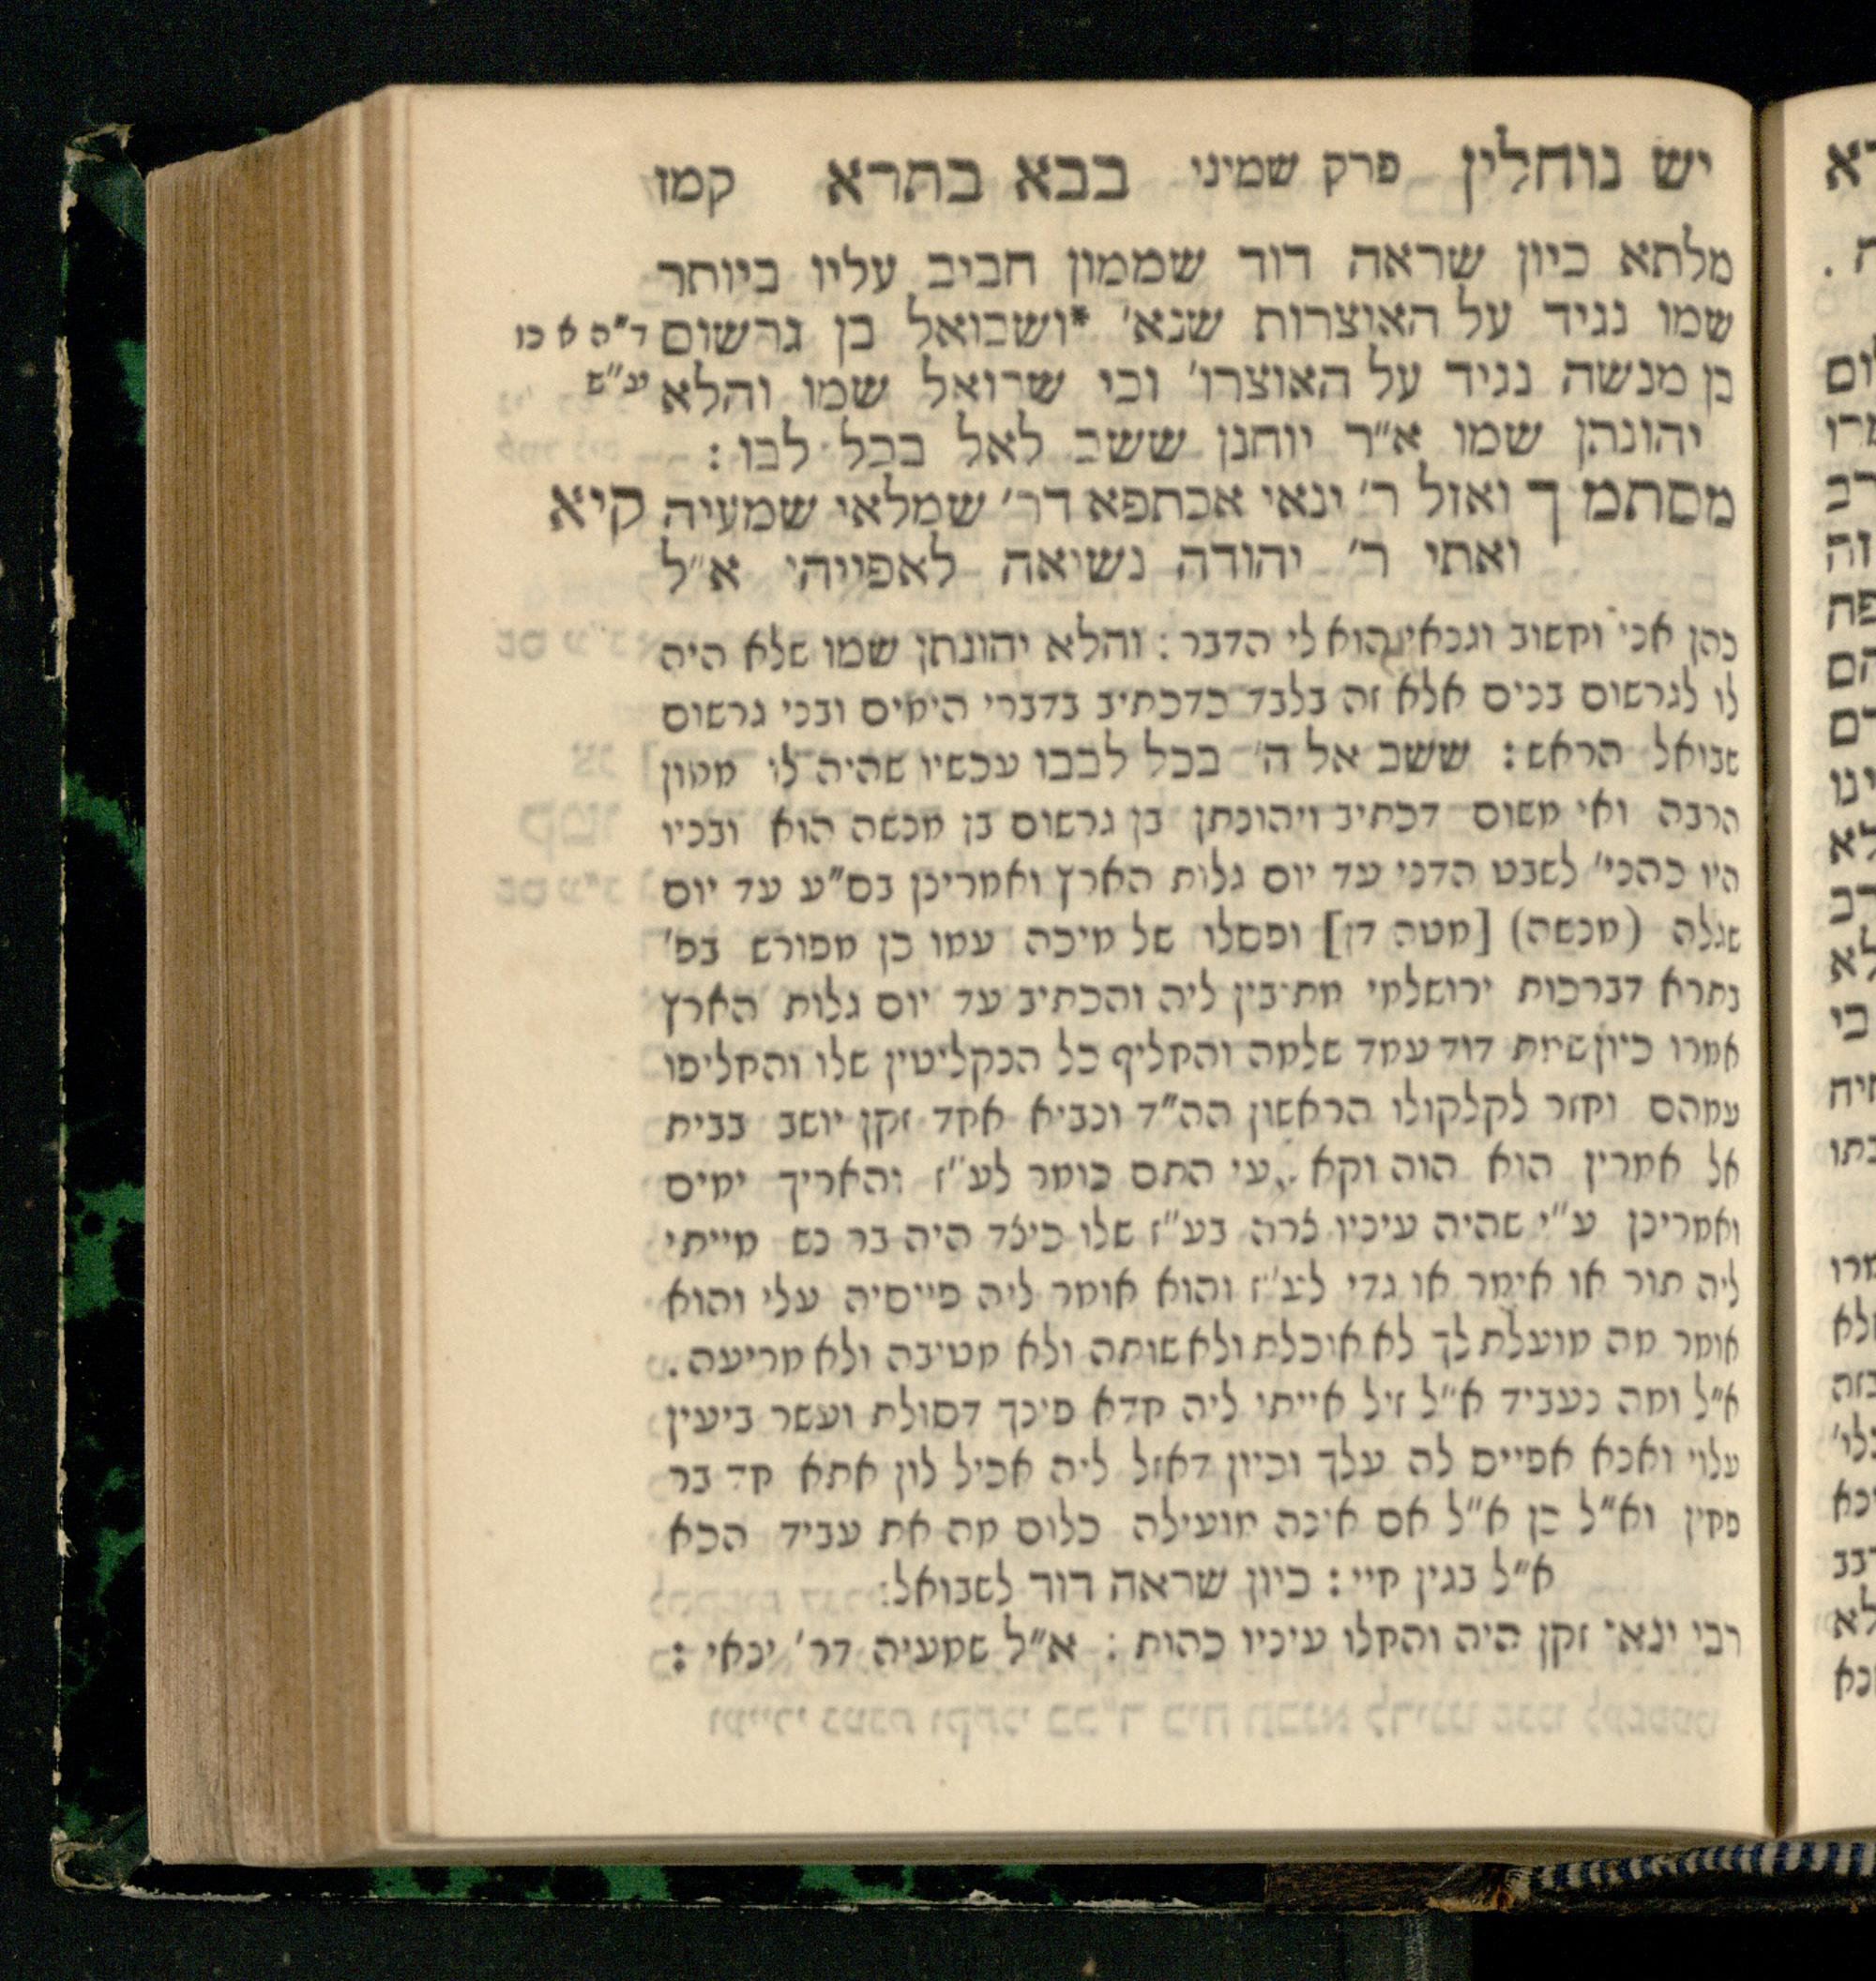 יש נוחלין פרק שמיני בבא בתרא קמז
מלתא כיון שראה דוד שממון חביב עליו ביותר
שמו נגיד על האוצרות שנא' *ושבואל בן גרשום ד"ה א כו
בן מנשה נגיד על האוצרו' וכי שבואל שמו והלא ע"ש
יהונתן שמו א"ר יוחנן ששב לאל בכל לבו :
מסתמך ואזל ר' ינאי אכתפא דר' שמלאי שמעיה קיא
ואתי ר' יהודה נשיאה לאפייהי א"ל
כהן אני וחשוב וגנאי הוא לי הדבר : והלא יהונתן שמו שלא היה
לו לגרשום בנים אלא זה בלבד כדכתיב בדברי הימים ובני גרשום
שבואל הראש : ששב אל ה' בכל לבבו עכשיו שהיה לו ממון
הרבה ואי משום דכתיב ויהונתן בן גרשום בן מנשה הוא ובניו
היו כהני' לשבט הדני עד יום גלות הארץ ואמרינן בס"ע עד יום
שגלה (מנשה) [מטה דן] ופסלו של מיכה עמו כן מפורש בפ'
בתרא דברכות ירושלמי מתיבין ליה והכתיב עד יום גלות הארץ
אמרו כיון שמת דוד עמד שלמה והחליף כל הנקליטין שלו והחליפו
עמהם וחזר לקלקולו הראשון הה"ד ונביא אחד זקן יושב בבית
אל אמרין הוא הוה וקא עי התם כומר לע"ז והאריך ימים
ואמרינן ע"י שהיה עיניו צרה בע"ז שלו כיצד היה בר נש מייתי
ליה תור או אימר או גדי לע"ז והוא אומר ליה פייסיה עלי והוא
אומר מה מועלת לך לא אוכלת ולא שותה ולא מטיבה ולא מריעה .
א"ל ומה נעביד א"ל זיל אייתי ליה חדא פינך דסולת ועשר ביעין
עלוי ואנא אפייס לה עלך וכיון דאזל ליה אכיל לון אתא חד בר
פחין וא"ל כן א"ל אם אינה מועילה כלום מה את עביד הכא
א"ל בגין חיי : כיון שראה דוד לשבואל:
רבי ינאי זקן היה והחלו עיניו כהות : א"ל שמעיה דר' ינאי :